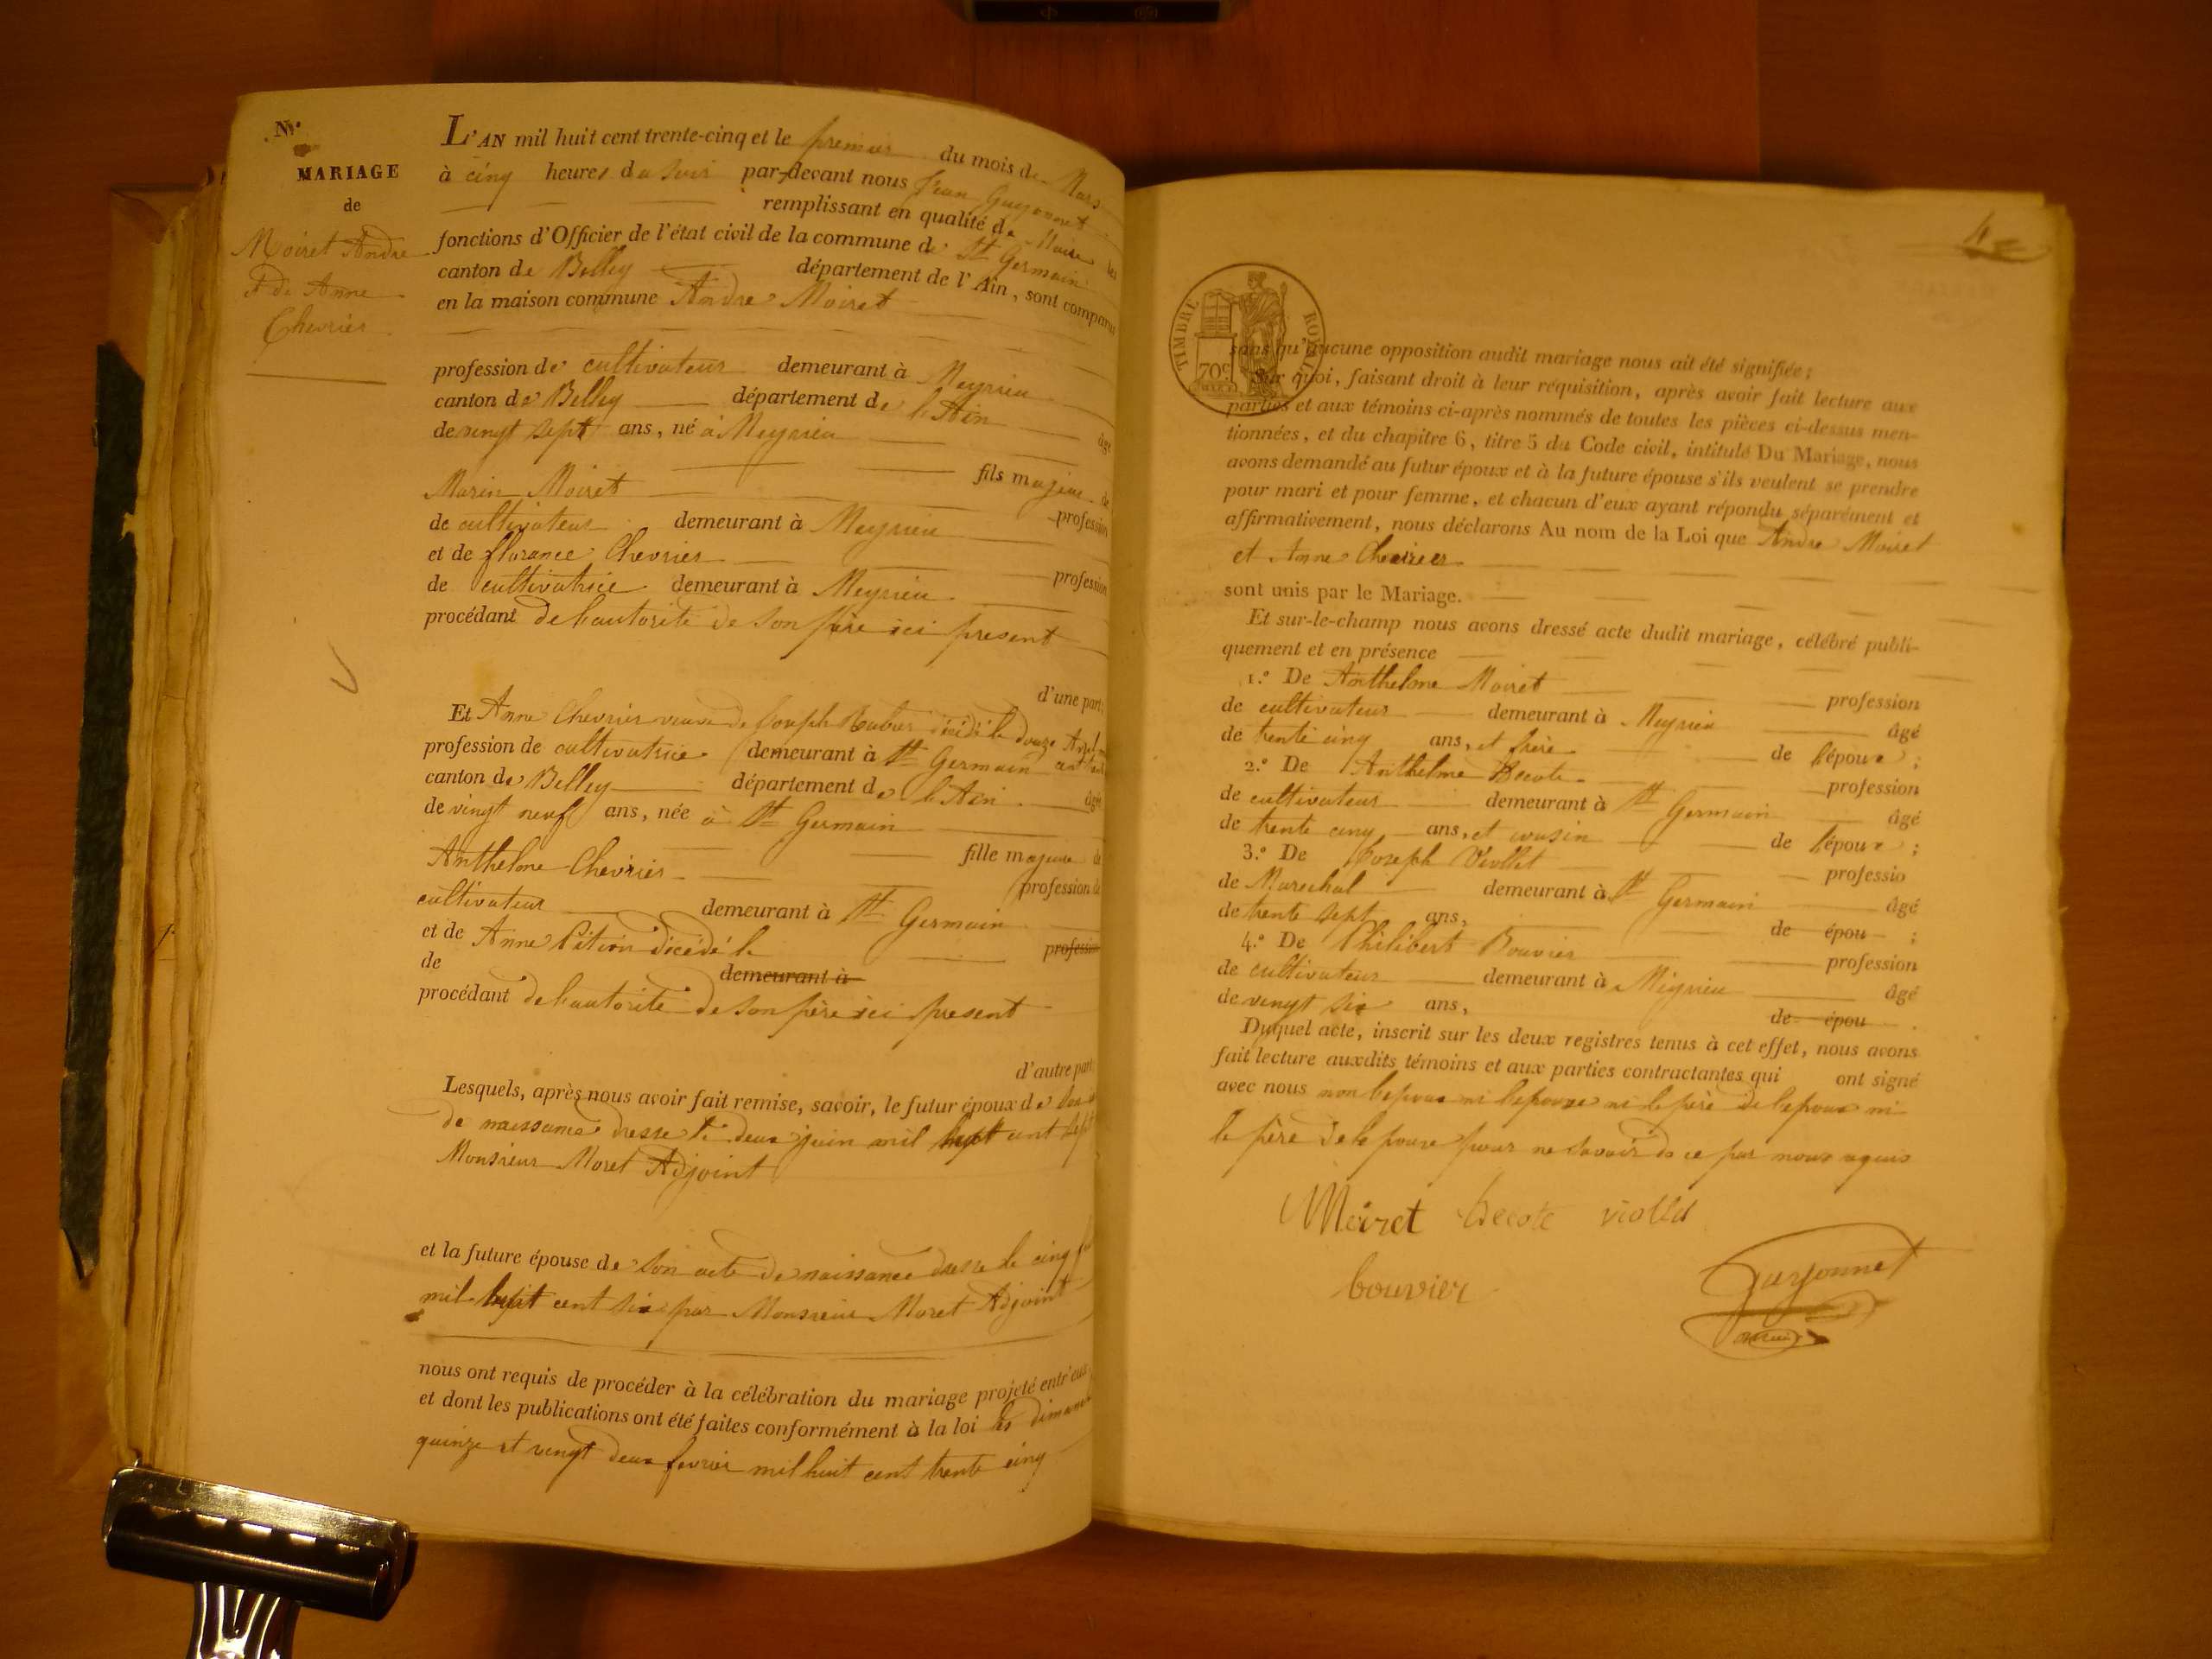 N.º
MARIAGE
de
Moiret Andre
Et de Anne
Chevrier
L'AN mil huit cent trente-cinq et le premier du mois de Mars
à cinq heures du soir par-devant nous Jean Guyonnet
remplissant en qualité de Maire les
fonctions d'Officier de l'état civil de la commune de St Germain
canton de Belley département de l'Ain, sont comparus
en la maison commune Andre Moiret
profession de cultivateur demeurant à Meyrieu
canton de Belley département de l'Ain âgé
de vingt sept ans, né à Meyrieu
fils majeur de
Marin Moiret profession
de cultivateur demeurant à Meyrieu
et de florance Chevrier profession
de cultivatrice demeurant à Meyrieu
procédant de l'autorité de son père ici present
d'une part;
Et Anne Chevrier veuve de Joseph décédé le douze
profession de cultivatrice demeurant à St Germain
canton de Belley département de l'Ain âgée
de vingt neuf ans, née à St Germain
fille majeure de
Anthelme Chevrier profession de
cultivateur demeurant à St Germain
et de Anne décédé le profession
de demeurant à
procédant de l'autorité de son père ici present
d'autre part;
Lesquels, après nous avoir fait remise, savoir, le futur époux de
de naissance dressé le deux juin mil huit cent sept
Monsieur Moret Adjoint
et la future épouse de son acte de naissance dressé le cinq
mil huit cent six par Monsieur Moret Adjoint
nous ont requis de procéder à la célébration du mariage projeté entr'eux
et dont les publications ont été faites conformément à la loi les
quinze et vingt deux fevrier mil huit cent trente cinq
4
TIMBRE ROYAL
70c
sans qu'aucune opposition audit mariage nous ait été signifiée;
Sur quoi, faisant droit à leur réquisition, après avoir fait lecture aux
parties et aux témoins ci-après nommés de toutes les pièces ci-dessus men-
tionnées, et du chapitre 6, titre 5 du Code civil, intitulé Du Mariage, nous
avons demandé au futur époux et à la future épouse s'ils veulent se prendre
pour mari et pour femme, et chacun d'eux ayant répondu séparément et
affirmativement, nous déclarons Au nom de la Loi que Andre Moiret
et Anne Chevrier
sont unis par le Mariage.
Et sur-le-champ nous avons dressé acte dudit mariage, célébré publi-
quement et en présence
1.º De Anthelme Moiret profession
de cultivateur demeurant à Meyrieu âgé
de trente cinq ans, et frère de l'époux ;
2.º De Anthelme Decote profession
de cultivateur demeurant à St Germain âgé
de trente cinq ans, et cousin de l'époux ;
3.º De Joseph Viollet professio
de Marechal demeurant à St Germain âgé
de trente sept ans, de épou ;
4.º De Philibert Bouvier profession
de cultivateur demeurant à Meyrieu âgé
de vingt six ans, de épou .
Duquel acte, inscrit sur les deux registres tenus à cet effet, nous avons
fait lecture auxdits témoins et aux parties contractantes qui ont signé
avec nous non l'epoux ni l'epouse ni le père de l'epoux ni
le père de l'epouse pour ne savoir de ce par nous
Moiret Decote viollet
bouvier Guyonnet
maire